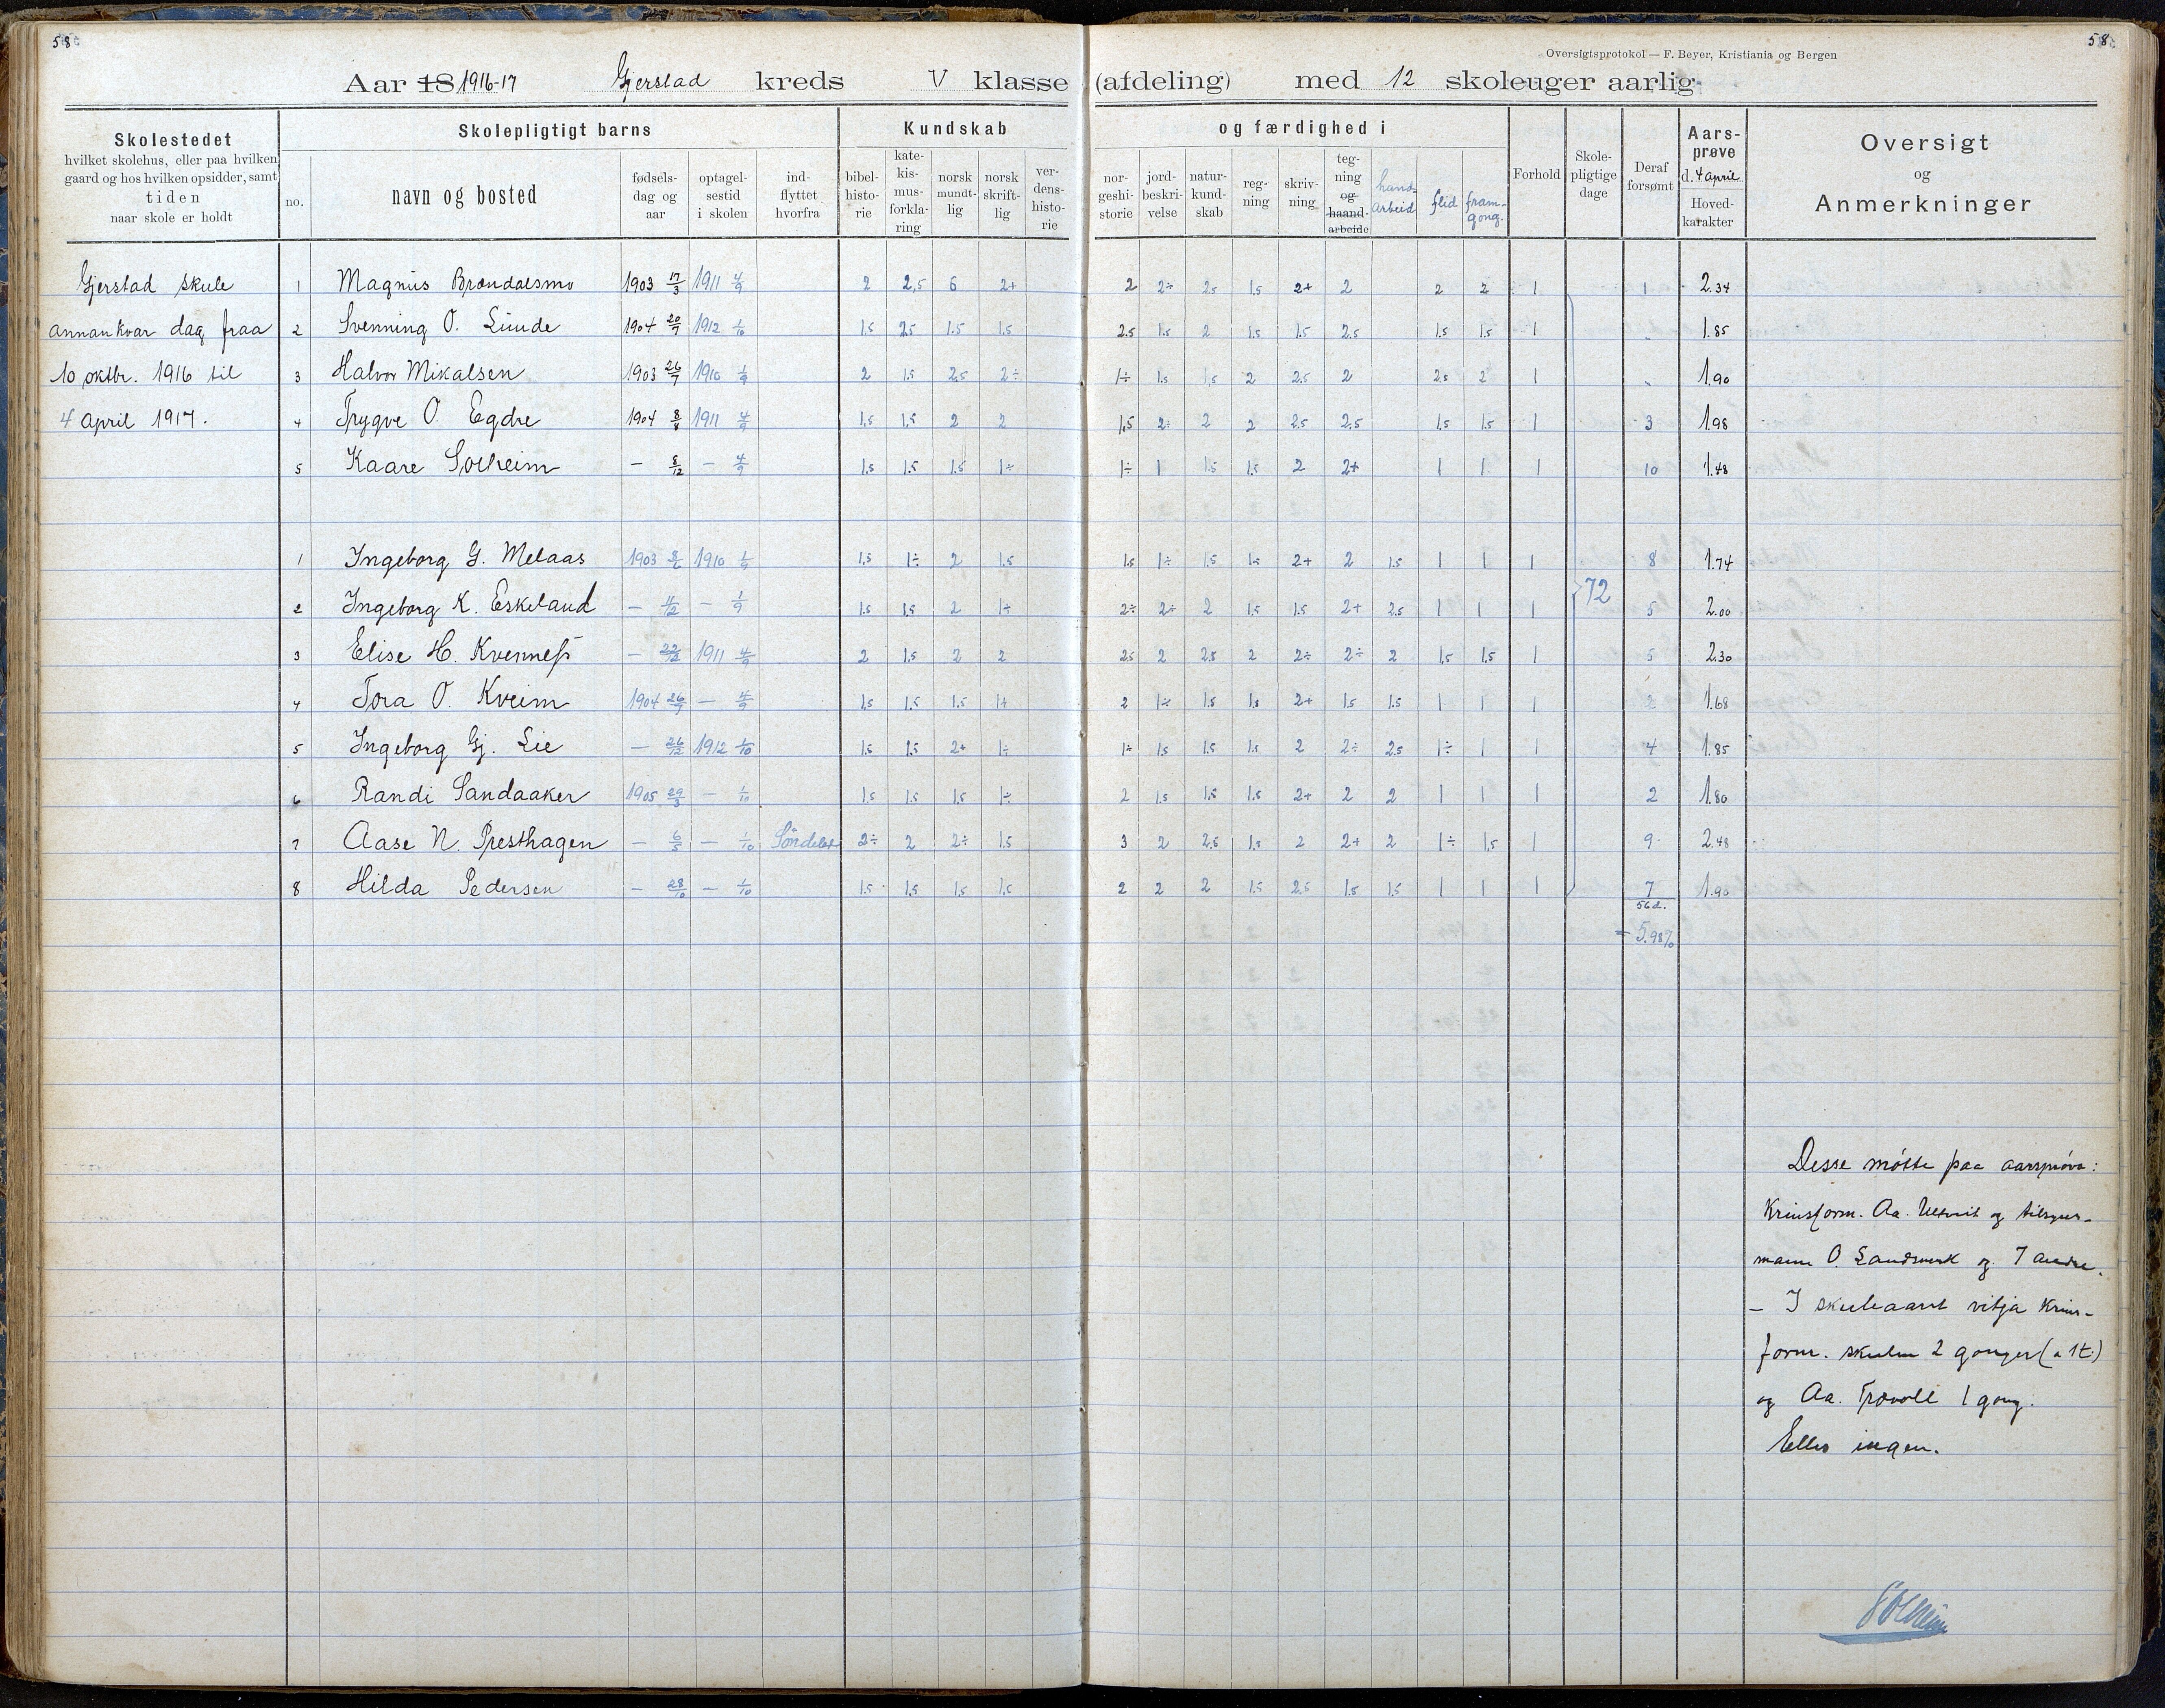 58
58
Oversigtsprotokol — F. Beyer, Kristiania og Bergen
Aar 18 1916-17 Gjerstad kreds V klasse (afdeling) med 12 skoleuger aarlig
Skolestedet
hvilket skolehus, eller paa hvilken
gaard og hos hvilken opsidder, samt
tiden
naar skole er holdt
Skolepligtigt barns
no.
navn og bosted
fødsels-
dag og
aar
optagel-
sestid
i skolen
ind-
flyttet
hvorfra
Kundskab
bibel-
histo-
rie
kate-
kis-
mus-
forkla-
ring
norsk
mundt-
lig
norsk
skrift-
lig
ver-
dens-
histo-
rie
og færdighed i
nor-
geshi-
storie
jord-
beskri-
velse
natur-
kund-
skab
reg-
ning
skriv-
ning
teg-
ning
og
haand-
arbeide
hand-
arbeid
flid
fram-
gong.
Forhold
Skole-
pligtige
dage
Deraf
forsømt
Aars-
prøve
d. 4 april
Hoved-
karakter
Oversigt
og
Anmerkninger
Gjerstad skule
annankvar dag fraa
10 oktbr. 1916 til
4 april 1917.
1 Magnus Brændalsmo 1903 17/3 1911 4/9 2 2,5 6 2+ 2 2÷ 2.5 1.5 2+ 2 2 2 1 1 2.34
2 Svenning O. Linde 1904 20/7 1912 1/10 1.5 2.5 1.5 1.5 2.5 1.5 2 1.5 1.5 2.5 1.5 1.5 1 " 1.85
3 Halvor Mikalsen 1903 26/7 1910 1/9 2 1.5 2.5 2÷ 1÷ 1.5 1,5 2 2.5 2 2.5 2 1 " 1.90
4 Trygve O. Egdre 1904 8/8 1911 4/9 1.5 1.5 2 2 1,5 2÷ 2 2 2.5 2.5 1.5 1.5 1 3 1.98
5 Kaare Solheim — 8/12 — 4/9 1.5 1.5 1.5 1÷ 1÷ 1 1.5 1.5 2 2+ 1 1 1 10 1.48
1 Ingeborg G. Melaas 1903 8/6 1910 1/9 1.5 1÷ 2 1.5 1.5 1÷ 1.5 1.5 2+ 2 1.5 1 1 1 8 1.74
72
2 Ingeborg K. Eskeland — 4/12 — 1/9 1.5 1.5 2 1÷ 2÷ 2÷ 2 1.5 1.5 2+ 2.5 1 1 1 5 2.00
3 Elise H. Kvernness — 22/12 1911 4/9 2 1.5 2 2 2.5 2 2.5 2 2÷ 2÷ 2 1.5 1.5 1 5 2.30
4 Tora O. Kveim 1904 26/7 — 4/9 1.5 1.5 1.5 1+ 2 1÷ 1.5 1.5 2+ 1.5 1.5 1 1 1 2 1.68
5 Ingeborg Gj. Lie — 26/12 1912 1/10 1.5 1.5 2+ 1÷ 1÷ 1.5 1.5 1.5 2 2÷ 2.5 1÷ 1 1 4 1.85
6 Randi Sandaaker 1905 29/3 — 1/10 1.5 1.5 1.5 1÷ 2 1.5 1.5 1.5 2+ 2 2 1 1 1 2 1.80
7 Aase N. Presthagen — 6/5 — 1/10 Söndeled 2÷ 2 2÷ 1.5 3 2 2.5 1.5 2 2+ 2 1÷ 1.5 1 9 2.48
8 Hilda Pedersen — 28/10 — 1/10 1.5 1.5 1.5 1.5 2 2 2 1.5 2.5 1.5 1.5 1 1 1 7 1.90
56 d.
= 5.98%
Desse møtte paa aarsprøva:
Krinsform. Aa. Ulltveit og tilsyns-
mann O. Landsverk og 7 andre.
– I skuleaaret vitja krins-
form. skulen 2 gonger (a 1 t.)
og Aa. Trovoll 1 gong.
Ellers ingen.
Solheim